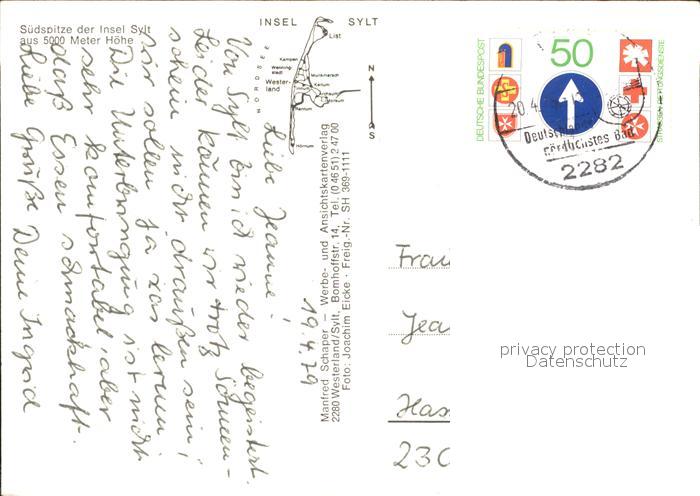 Südspitze der Insel Sylt
aus 5000 Meter Höhe
INSEL SYLT
NORDSEE
List
Kampen
Wenning-
stedt
Munkmarsch
Wester-
land
Keitum
Morsum
Rantum
Hörnum
N
S
19.4.79
Liebe Jeanne!
Von Sylt bin ich wieder begeistert.
Leider können wir trotz Sonnen-
schein nicht draußen sein,
wir sollen ja was lernen.
Die Unterbringung ist nicht
sehr komfortabel, aber
daß Essen schmackhaft.
Liebe Grüße Deine Ingrid
Manfred Schaper – Werbe- und Ansichtskartenverlag
2280 Westerland/Sylt, Bomhoffstr. 14, Tel. (0 46 51) 2 47 00
Foto: Joachim Eicke · Freig.-Nr. SH 369-1111
DEUTSCHE BUNDESPOST
50
20.4.
nördlichstes Bad
2282
Frau
Jea
Has
230
privacy protection
Datenschutz